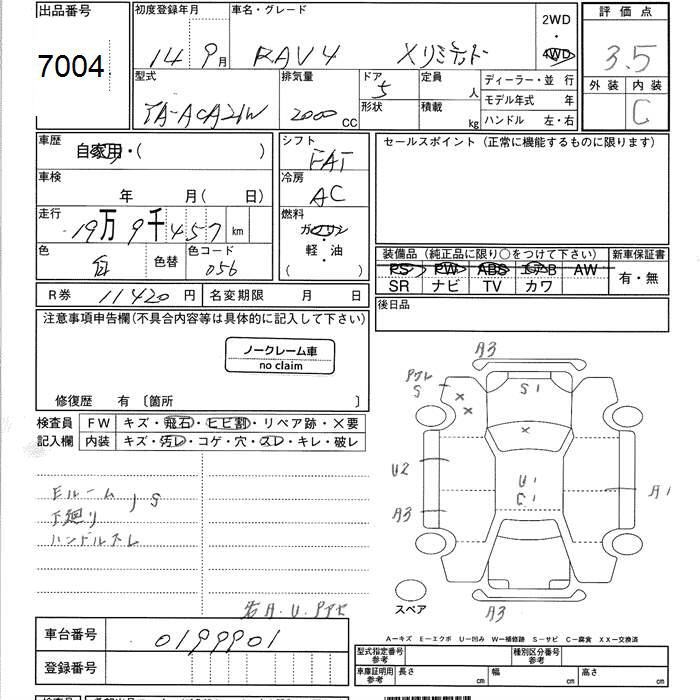 出品番号 初度登録年月 車名・グレード 2WD 評価点
7004 14 9月 RAV4 Xリミテッド ・ 4WD 3.5
型式 排気量 ドア 5 定員 人 ディーラー・並行 外装 内装
TA-ACA21W 2000 CC 形状 積載 kg モデル年式 年 C
ハンドル 左・右
車歴 自家用・( ) シフト FAT セールスポイント (正常に機能するものに限ります)
車検 年 月( 日) 冷房 AC
走行 19万9千457 km 燃料 ガソリン
色 白 色替 色コード 056 軽・油 ( )
装備品 (純正品に限り○をつけて下さい) 新車保証書
PS PW ABS エアB AW 有・無
SR ナビ TV カワ
R券 11420円 名変期限 月 日 後日品
注意事項申告欄(不具合内容等は具体的に記入して下さい)
ノークレーム車
no claim
修復歴 有 〔箇所 〕
検査員 FW キズ・飛石・ヒビ割・リペア跡・×要
記入欄 内装 キズ・汚レ・コゲ・穴・スレ・キレ・破レ
A3
S
S1
U2
U1
C1
A3
A1
Eルーム S
下廻り
ハンドルスレ
スペア
A3
車台番号 0199901
登録番号
A−キズ E−エクボ U−凹み W−補修跡 S−サビ C−腐食 XX−交換済
型式指定番号 参考 種別区分番号 参考
車庫証明用 参考 長さ cm 幅 cm 高さ cm